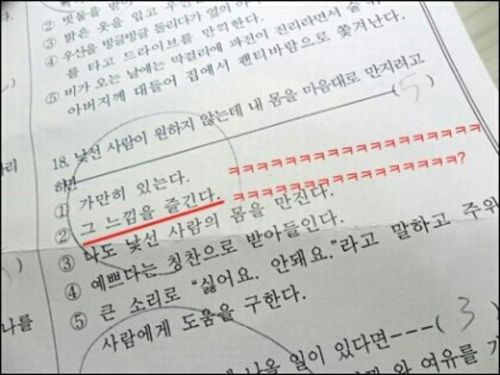 ② 빗물을 받아
③ 밝은 옷을 입고 우산
④ 우산을 빙글빙글 돌리다가 옆의
를 타고 드라이브를 만끽한다.
⑤ 비가 오는 날에는 막걸리에 파전이 진리라면서 술
아버지께 대들어 집에서 팬티바람으로 쫓겨난다.
( 5 )
18. 낯선 사람이 원하지 않는데 내 몸을 마음대로 만지려고
하면
① 가만히 있는다.
ㅋㅋㅋㅋㅋㅋㅋㅋㅋㅋㅋㅋㅋㅋㅋㅋㅋㅋ
② 그 느낌을 즐긴다.
ㅋㅋㅋㅋㅋㅋㅋㅋㅋㅋㅋㅋㅋㅋㅋㅋ?
③ 나도 낯선 사람의 몸을 만진다.
④ 예쁘다는 칭찬으로 받아들인다.
⑤ 큰 소리로 "싫어요. 안돼요."라고 말하고 주위
사람에게 도움을 구한다.
나올 일이 있다면---( 3 )
나를
여유를